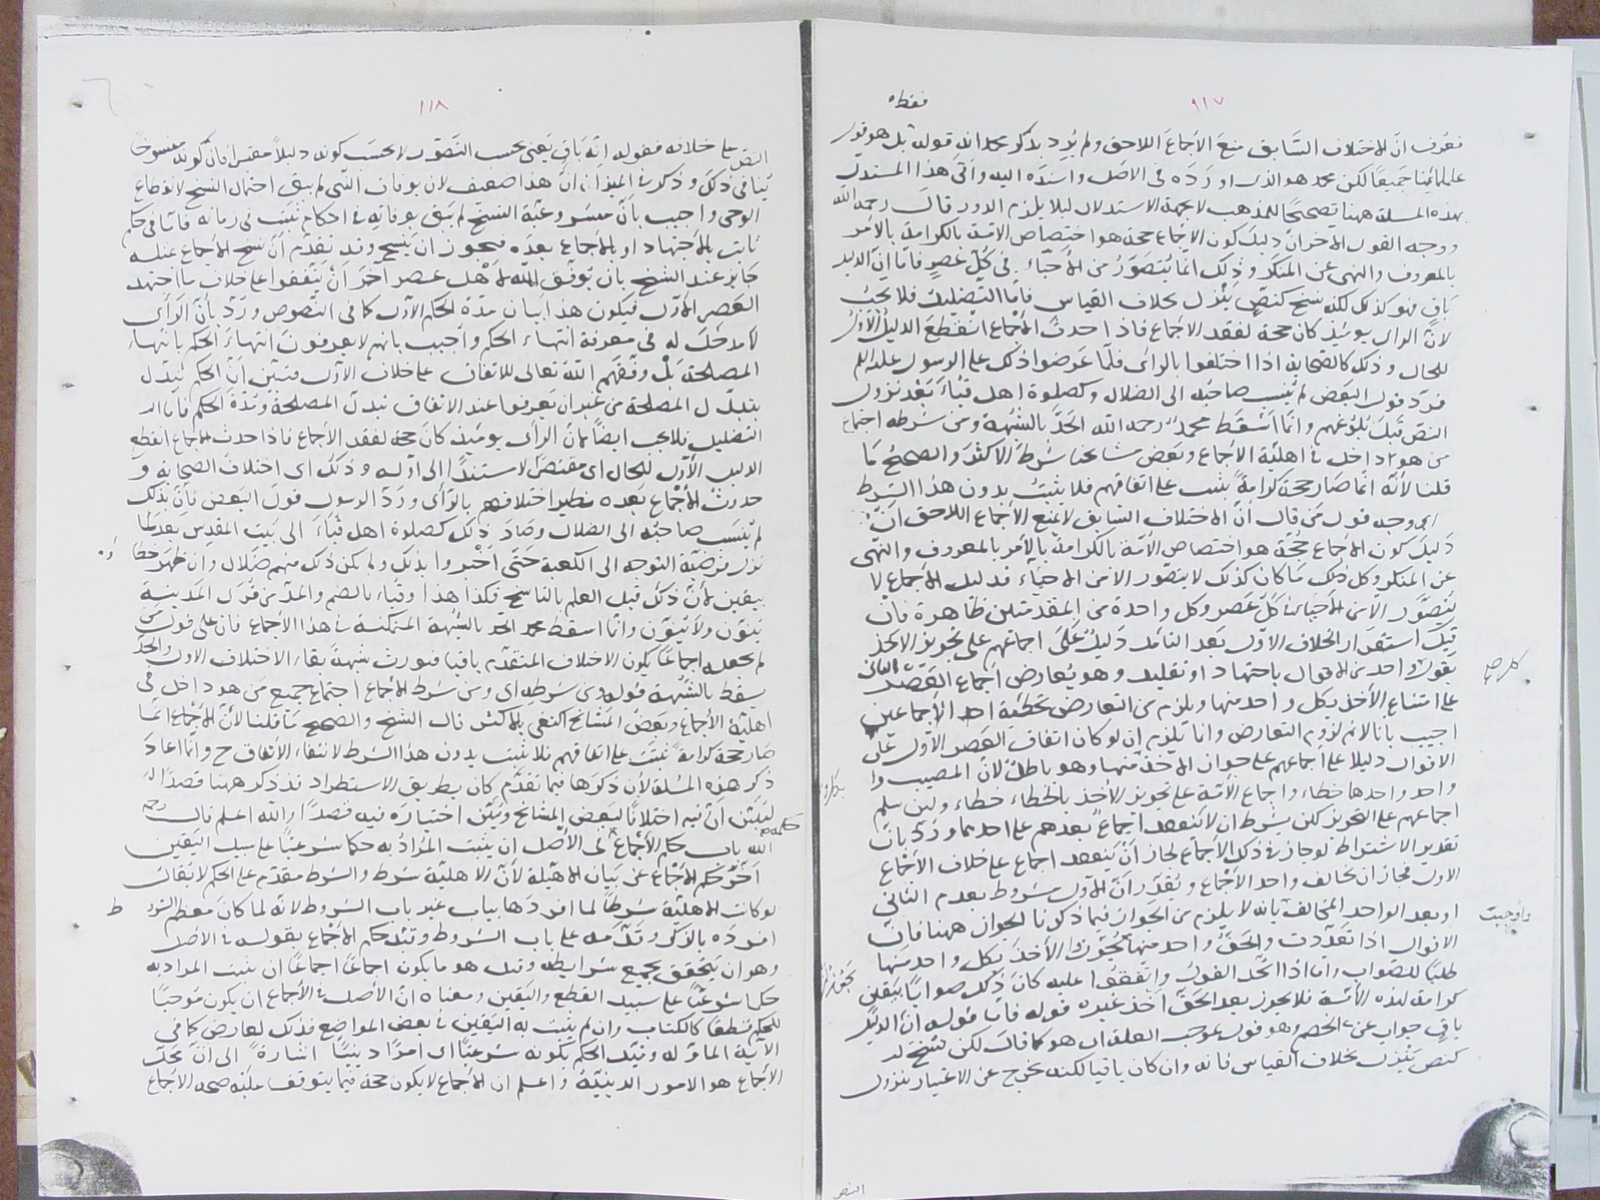 ٩١٧
فقط٥
فعرف ان الاختلاف السابق منع الاجماع اللاحق ولم يرد بذكر محمد انه قوله بل هو قول
علمائنا جميعا لكن محمد هو الذى اورده فى الاصل واسنده اليه واتى هذا المستدل
بهذه المسئلة ههنا تصحيحا للمذهب لا بجهة الاستدلال ليلا يلزم الدور قال رحمه الله
ووجه القول الاخر ان دليل كون الاجماع حجة هو اختصاص الامة بالكرامة بالامر
بالمعروف والنهى عن المنكر وذلك انما يتصور من الاحياء فى كل عصر فاما ان الدليل
باق فهو كذلك لكنه نسخ كنص ينزل بخلاف القياس فاما التضليل فلا يجب
لان الراى يومئذ كان حجة لفقد الاجماع فاذا حدث الاجماع انقطع الدليل الاول
للحال وذلك كالصحابة اذا اختلفوا بالراى فلما عرضوا ذلك على الرسول عليه السلم
فرد قول البعض لم ينسب صاحبه الى الضلال وكصلوة اهل قباء بعد نزول
النص قبل بلوغهم وانما اسقط محمد رحمه الله الحد بالشبهة ومن شرطه اجتماع
من هو داخل فى اهلية الاجماع وبعض مشايخنا شرط الاكثر والصحيح ما
قلنا لانه انما صار حجة كرامة يثبت على اتفاقهم فلا يثبت بدون هذا الشرط
اى وجه قول من قال ان الاختلاف السابق لا يمنع الاجماع اللاحق ان
دليل كون الاجماع حجة هو اختصاص الامة بالكرامة بالامر بالمعروف والنهى
عن المنكر وكل ذلك ما كان كذلك لا يتصور الا من الاحياء فدليل الاجماع لا
يتصور الا من الاحياء فى كل عصر وكل واحدة من المقدمتين ظاهرة فان
قيل استقرار الخلاف الاول بعد التامل دليل على اجماعهم على تجويز الاخذ
بقول واحد من الاقوال باجتهاد او تقليد وهو يعارض اجماع العصر الثانى
على امتناع الاخذ بكل واحد منها ويلزم من التعارض تخطئة احد الاجماعين
اجيب بانا لا نم لزوم التعارض وانما يلزم ان لو كان اتفاق العصر الاول على
الاقوال دليلا على اجماعهم على جواز الاخذ منها وهو باطل لان المصيب وا
واحد واحدها خطاء واجماع الامة على تجويز الاخذ بالخطاء خطاء ولين سلم
اجماعهم على التجويز لكن بشرط ان لا ينعقد اجماع بعدهم على احدهما ورد بان
تقدير الاشتراط لو جاز فى ذلك الاجماع لجاز ان ينعقد اجماع على خلاف الاجماع
الاول فجاز ان يخالف واحد الاجماع ويقدر ان الاول مشروط بعدم الثانى
او بعد الواحد المخالف بانه لا يلزم من الجواز فيما ذكرنا الجواز ههنا فان
الاقوال اذا تعددت والحق واحد منها يجوز الاخذ بكل واحد منها
طلبا للصواب واما اذا اتحد القول واتفقوا عليه كان ذلك صوابا بيقين
كرامة لهذه الامة فلا يجوز بعد الحق اخذ غيره قوله فاما قوله ان الدليل
باق جواب عن الخصم وهو قول بموجب العلة اى هو كما قال لكن نسخ له
كنص ينزل بخلاف القياس فانه وان كان باقيا لكنه يخرج عن الاعتبار بنزول
النص
١١٨
النص على خلافه فقوله انه باق يعنى بحسب التصور لا بحسب كونه دليلا معتبرا فان كونه منسوخا
ينافى ذلك وذكر فى الميزان ان هذا ضعيف لان بوفات النبى لم يبق احتمال النسخ لانقطاع
الوحى واجيب بان مشروعية النسخ لم يبق بوفاته فى احكام ثبتت فى زمانه فاما فى حكم
ثابت بالاجتهاد او بالاجماع بعده فيجوز ان ينسخ وقد تقدم ان نسخ الاجماع عنله
جايز عند الشيخ بان توفق الله لاهل عصر اخر ان يتفقوا على خلاف ما اجتهد
العصر الاول فيكون هذا بيان مدة الحكم الاول كما فى النصوص ورد بان الراى
لا مدخل له فى معرفة انتهاء الحكم واجيب بانهم لا يعرفون انتهاء الحكم بانتهاء
المصلحة بل وفقهم الله تعالى للاتفاق على خلاف الاول فتبين ان الحكم تبدل
بتبدل المصلحة من غير ان يعرفوا عند الاتفاق تبدل المصلحة ومدة الحكم فاما
التضليل فلا يجب ايضا لان الراى يومئذ كان حجة لفقد الاجماع فاذا حدث الاجماع انقطع
الدليل الاول للحال اى مقتصرا لا مستندا الى اوله وذلك اى اختلاف الصحابة و
حدوث الاجماع بعده نظير اختلافهم بالراى ورد الرسول قول البعض فان بذلك
لم ينسب صاحبه الى الضلال وصار ذلك كصلوة اهل قباء الى بيت المقدس بعد ما
نزل فرضية التوجه الى الكعبة حتى اخبروا بذلك ولم يكن ذلك منهم ضلال وان ظهر خطا
بيقين لان ذلك قبل العلم بالناسخ فكذا هذا وقباء بالضم والمد من قرى المدينة
ينون ولا ينون وانما اسقط محمد الحد بالشبهة المتمكنة فى هذا الاجماع فان على قول من
لم يجعله اجماعا يكون الاختلاف المتقدم باقيا فيورث شبهة بقاء الاختلاف الاول والحد
يسقط بالشبهة قوله ومن شرطه اى ومن شرط الاجماع اجتماع جميع من هو داخل فى
اهلية الاجماع وبعض المشايخ اكتفى بالاكثر قال الشيخ والصحيح ما قلنا لان الاجماع انما
صار حجة كرامة تثبت على اتفاقهم فلا يثبت بدون هذا الشرط لانتفاء الاتفاق ح وانما اعاد
ذكر هذه المسئلة لان ذكرها فيما تقدم كان بطريق الاستطراد فذكر ههنا قصدا
ليبين ان فيه اختلافا لبعض المشايخ ويبين اختياره فيه قصدا والله اعلم قال رحمه
الله باب حكم الاجماع حكمه فى الاصل ان يثبت المراد به حكما شرعيا على سبيل اليقين
اخر حكم الاجماع عن بيان الاهلية لان الاهلية شرط والشرط مقدم على الحكم لا يقال
لو كانت الاهلية شرطا لما افردها بباب غير باب الشروط لانه لما كان معظم الشروط
افرده بالذكر وقدمه على باب الشروط وقيد حكم الاجماع بقوله فى الاصل
وهو ان يتحقق بجميع شرايطه وقيل هو ما يكون اجماعا اجماعا ان يثبت المراد به
حكما شرعيا على سبيل القطع واليقين ومعناه ان الاصل فى الاجماع ان يكون موجبا
للحكم قطعا كالكتاب وان لم يثبت به اليقين فى بعض المواضع فذلك لعارض كما فى
الآية الماولة وقيد الحكم بكونه شرعيا اى امرا دينيا اشارة الى ان محل
الاجماع هو الامور الدينية واعلم ان الاجماع لا يكون حجة فيما يتوقف عليه صحة الاجماع